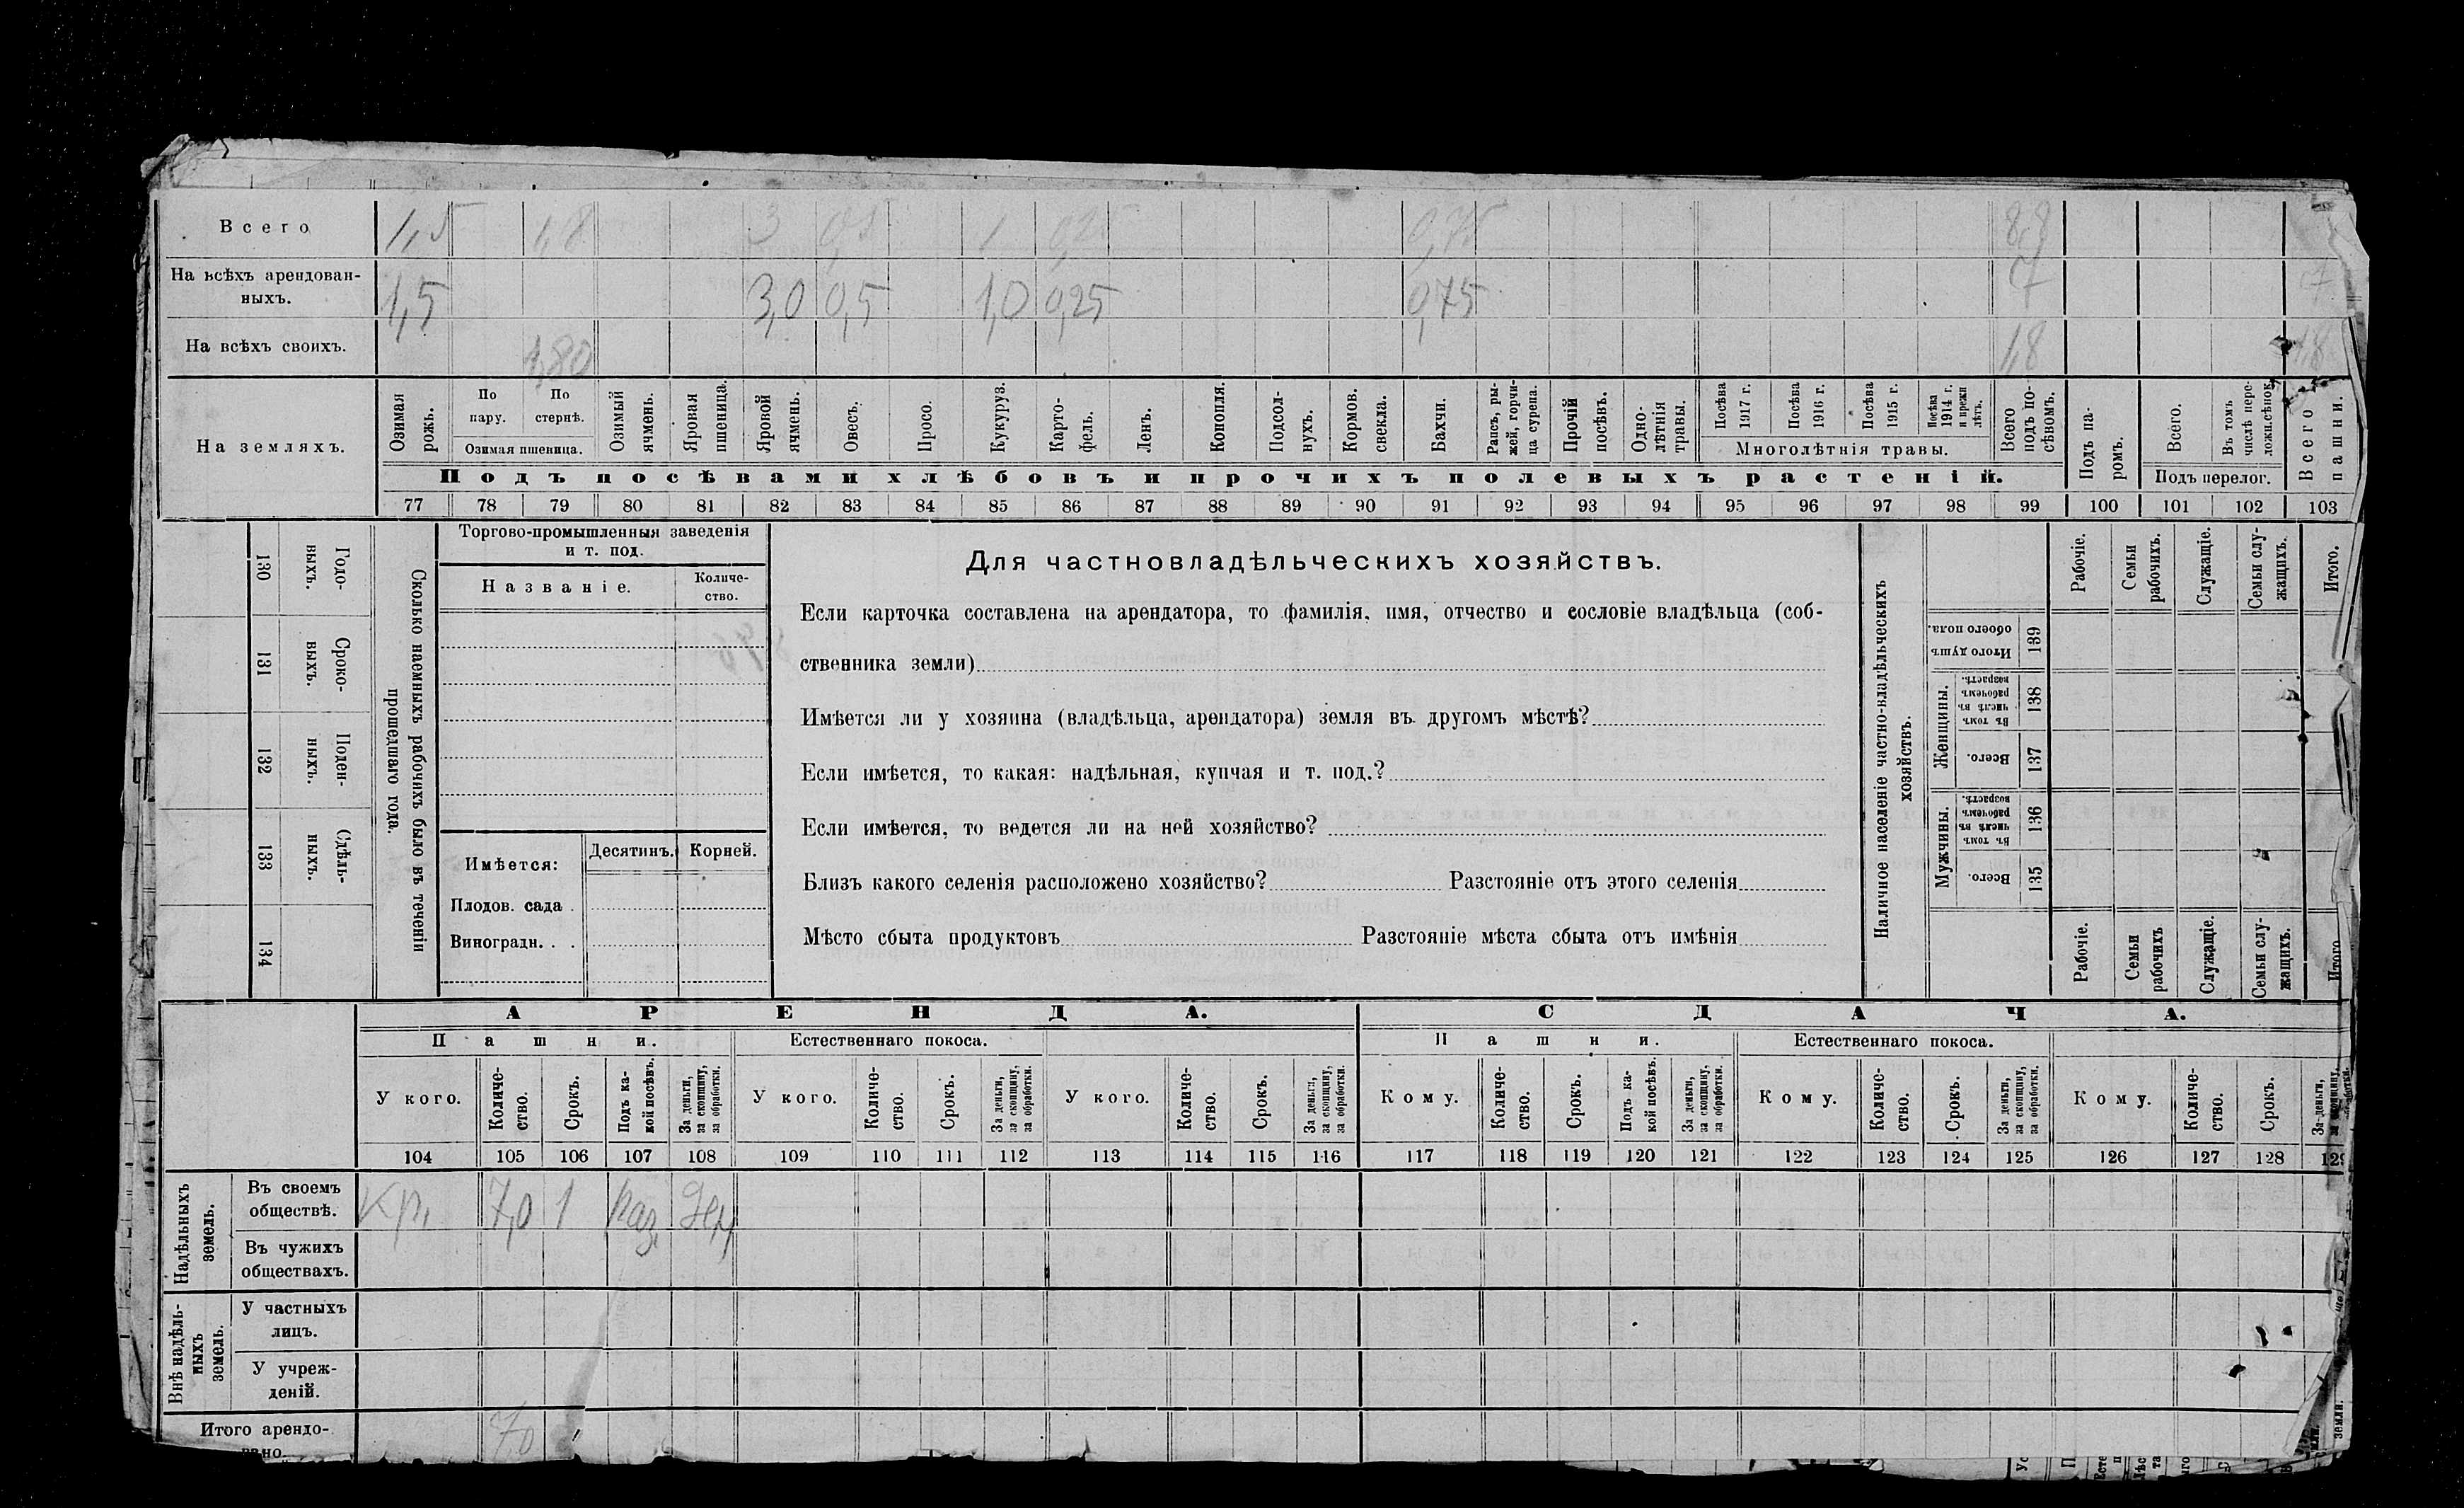 Всего 1,5 1,8 3 0,5 1 0,25 0,75 8,8
На всѣхъ арендован-
ныхъ. 1,5 3,0 0,5 1,0 0,25 0,75 7 7
На всѣхъ своихъ. 1,80 1,8 1,8
На земляхъ.
Озимая рожь.
По пару.
По стернѣ.
Озимая пшеница.
Озимый ячмень.
Яровая пшеница.
Яровой ячмень.
Овесъ.
Просо.
Кукуруз.
Карто-
фель.
Ленъ.
Конопля.
Подсол-
нухъ.
Кормов.
свекла.
Бахчи.
Рапсъ, ры-
жей, горчи-
ца сурепа.
Прочій
посѣвъ.
Одно-
лѣтнія
травы.
Посѣва
1917 г.
Посѣва
1916 г.
Посѣва
1915 г.
Посѣва
1914 г.
и прежн
лѣтъ.
Многолѣтнія травы.
Всего
подъ по-
сѣвомъ.
Подъ па-
ромъ.
Всего.
Въ томъ
числѣ пере-
ложн.сѣнок.
Подъ перелог.
Всего
пашни.
Подъ посѣвами хлѣбовъ и прочихъ полевыхъ растеній.
77 78 79 80 81 82 83 84 85 86 87 88 89 90 91 92 93 94 95 96 97 98 99 100 101 102 103
130 Годо-
выхъ.
131 Сроко-
выхъ.
132 Поден-
ныхъ.
133 Сдѣль-
ныхъ.
134
Сколько наемныхъ рабочихъ было въ теченіи
прошедшаго года.
Торгово-промышленныя заведенія
и т. под.
Названіе.
Количе-
ство.
Имѣется:
Десятинъ. Корней.
Плодов. сада .
Виноградн. . .
Для частновладѣльческихъ хозяйствъ.
Если карточка составлена на арендатора, то фамилія, имя, отчество и сословіе владѣльца (соб-
ственника земли)
Имѣется ли у хозяина (владѣльца, арендатора) земля въ другомъ мѣстѣ?
Если имѣется, то какая: надѣльная, купчая и т. под.?
Если имѣется, то ведется ли на ней хозяйство?
Близъ какого селенія расположено хозяйство? Разстояніе отъ этого селенія
Мѣсто сбыта продуктовъ Разстояніе мѣста сбыта отъ имѣнія
Наличное населеніе частно-владѣльческихъ
хозяйствъ.
Рабочіе.
Семьи
рабочихъ.
Служащіе.
Семьи слу-
жащихъ.
Итого.
Итого душъ
обоего пола.
139
Женщины.
Въ томъ
числѣ въ
рабочемъ
возрастѣ.
138
Всего.
137
Мужчины.
Въ томъ
числѣ въ
рабочемъ
возрастѣ.
136
Всего.
135
Рабочіе.
Семьи
рабочихъ
Служащіе.
Семьи слу-
жащихъ.
Итого
АРЕНДА. СДАЧА.
Пашни. Естественнаго покоса. Пашни. Естественнаго покоса.
У кого.
Количе-
ство.
Срокъ.
Подъ ка-
кой посѣвъ.
За деньги,
за скопщину,
за обработки.
У кого.
Количе-
ство.
Срокъ.
За деньги,
за скопщину,
за обработки.
У кого.
Количе-
ство.
Срокъ.
За деньги,
за скопщину,
за обработки.
Кому.
Количе-
ство.
Срокъ.
Подъ ка-
кой посѣвъ.
За деньги,
за скопщину,
за обработки.
Кому.
Количе-
ство.
Срокъ.
За деньги,
за скопщину,
за обработки.
Кому.
Количе-
ство.
Срокъ.
За деньги,
за скопщину,
104 105 106 107 108 109 110 111 112 113 114 115 116 117 118 119 120 121 122 123 124 125 126 127 128 129
Надѣльныхъ
земель.
Въ своемъ
обществѣ. Кр. 7,0 1 Раз.
Въ чужихъ
обществахъ.
Внѣ надѣль-
ныхъ
земель.
У частныхъ
лицъ.
У учреж-
деній.
Итого арендо-
вано. 7,0